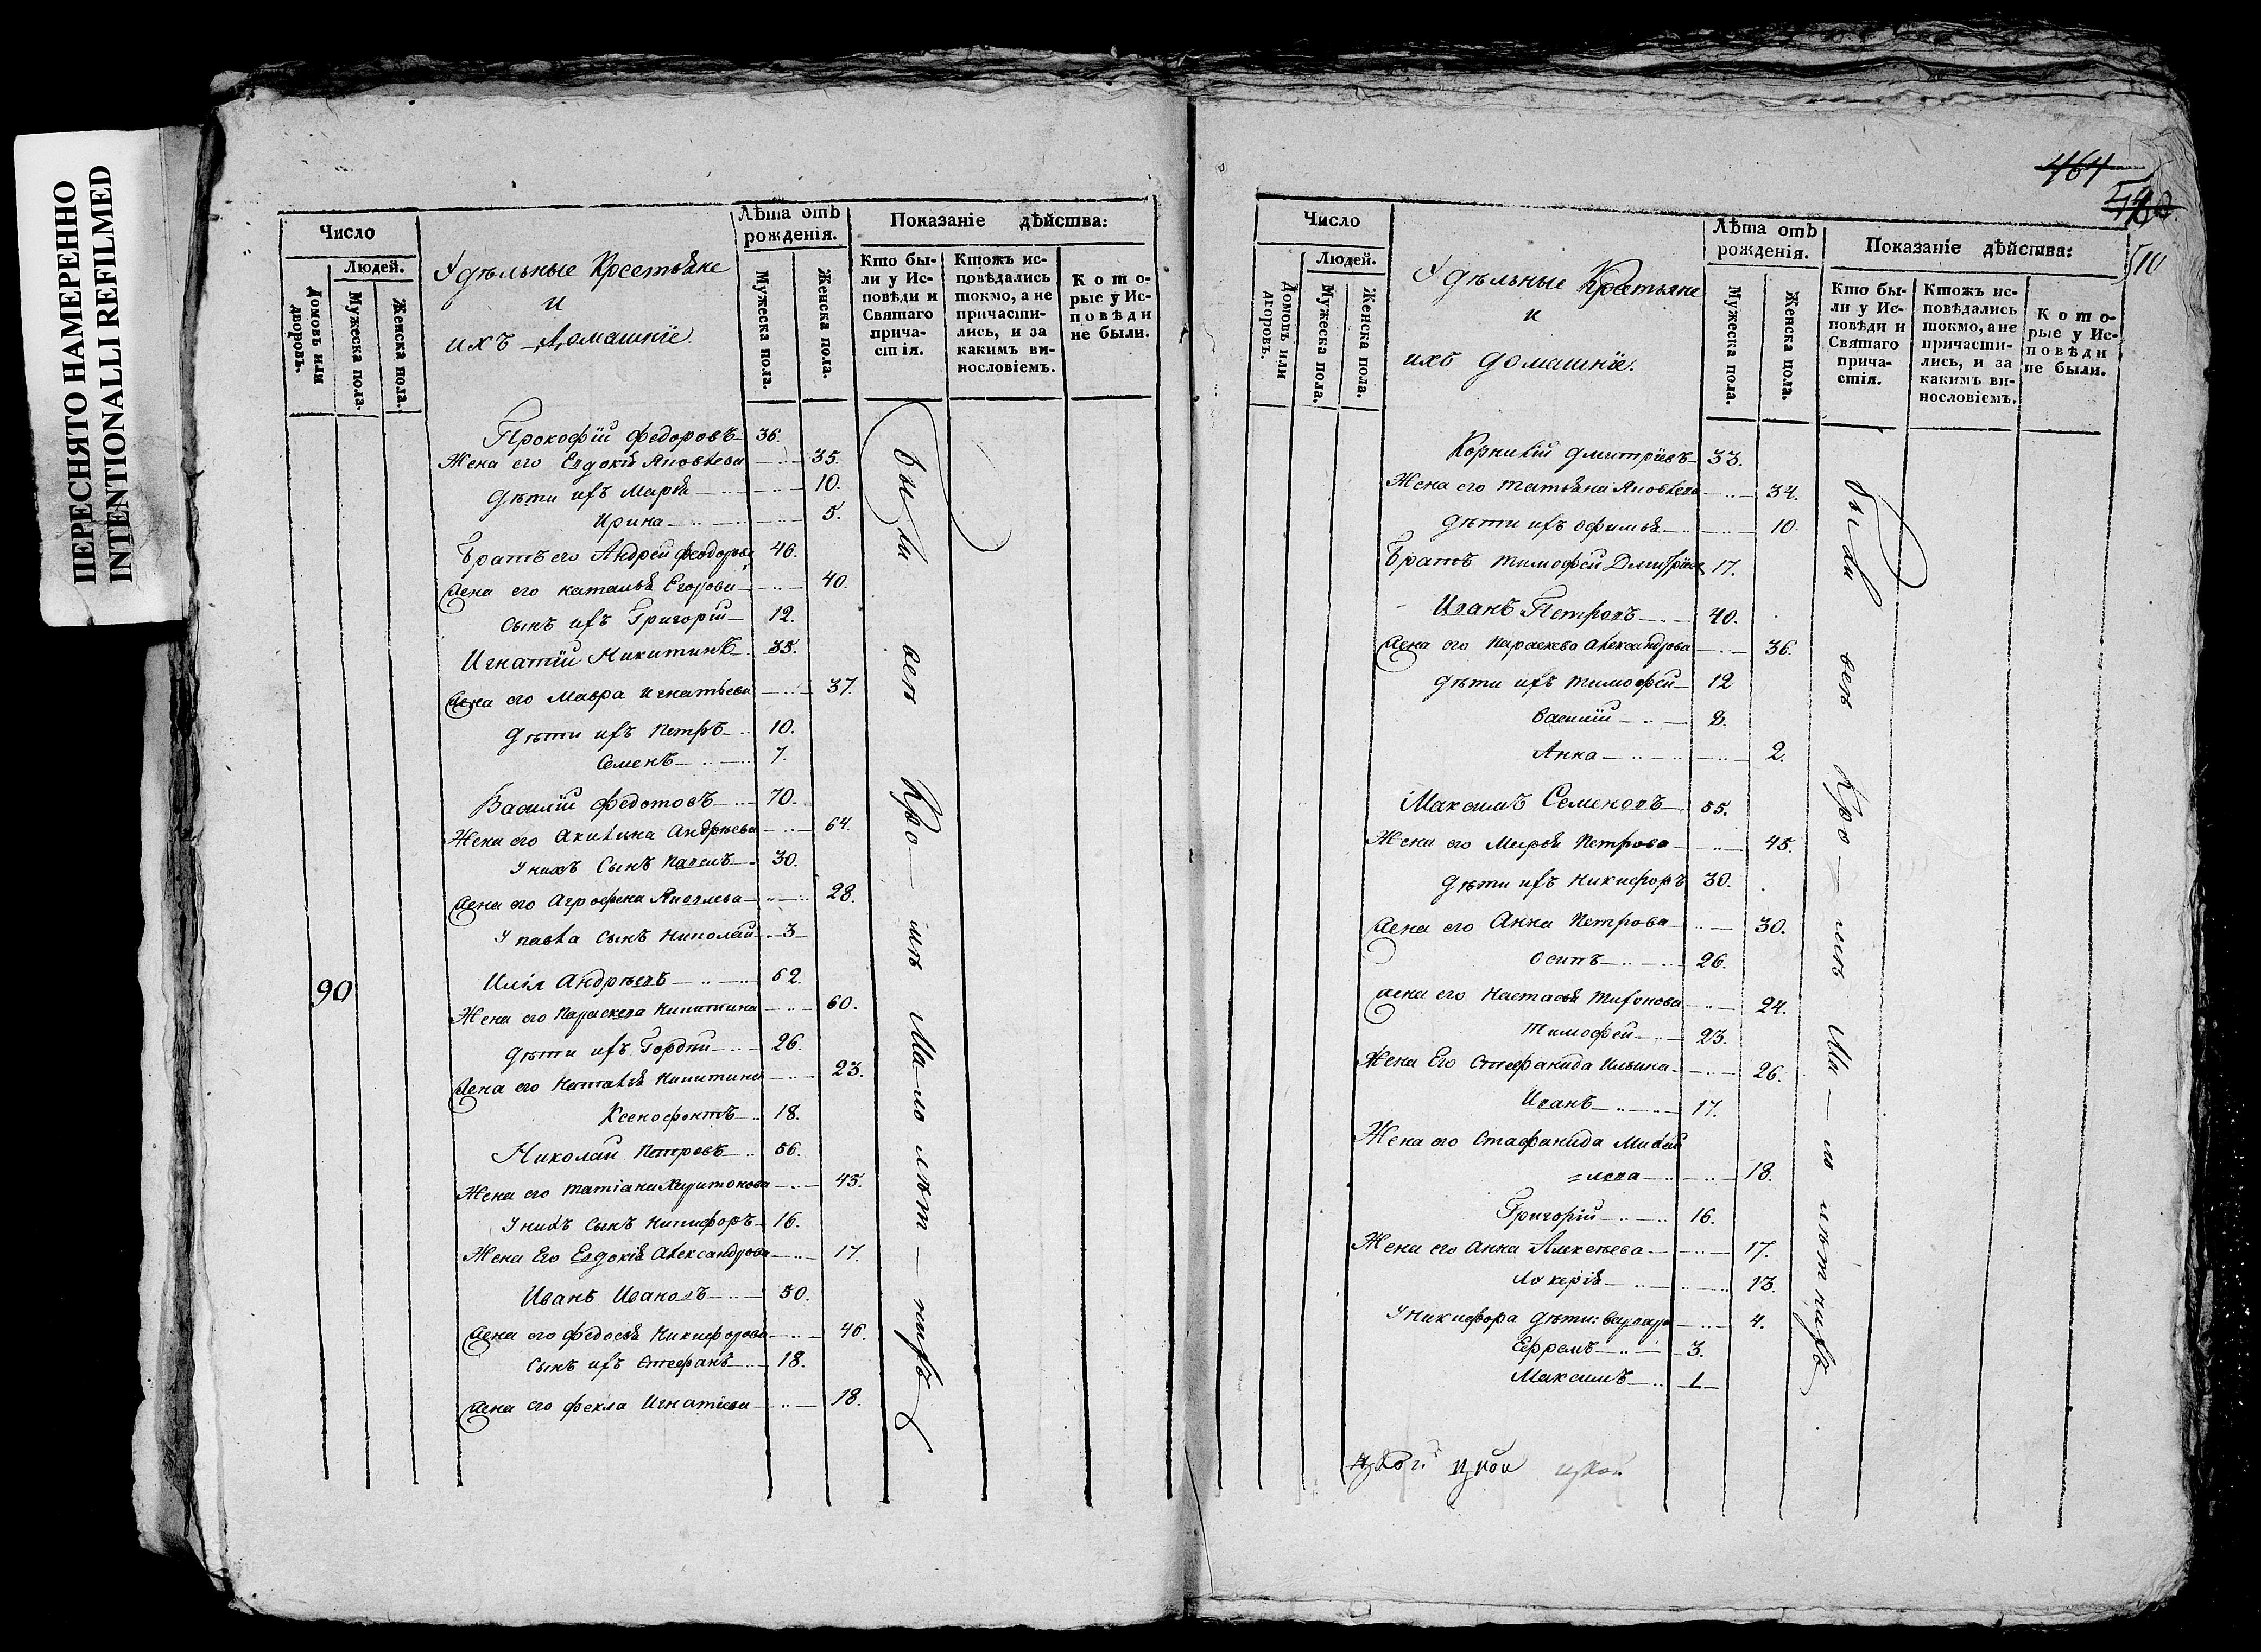 ПЕРЕСНЯТО НАМЕРЕННО
INTENTIONALLI REFILMED
Число
Людей.
Домовъ или дворовъ.
Мужеска пола.
Женска пола.
Удѣльные Крестьяне
и
ихъ Домашніе.
Лѣта отъ рожденія.
Мужеска пола.
Женска пола.
Показаніе дѣйства:
Кто бы-
ли у Ис-
повѣди и
Святаго
прича-
стія.
Ктожъ ис-
повѣдались
токмо, а не
причасти-
лись, и за
какимъ ви-
нословіемъ.
Кото-
рые у Ис-
повѣди
не были.
Прокофій Федоровъ 36.
Жена его Евдокія Яковлева 35.
Дѣти ихъ Марья 10.
Ирина 5.
Братъ его Андрей Феодоровъ 46.
Жена его Наталья Егорова 40.
Сынъ ихъ Григорій 12.
Игнатій Никитинъ 35.
Жена его Мавра Игнатьева 37.
Дѣти ихъ Петръ 10.
Семенъ 7.
Василій Федотовъ 70.
Жена его Акилина Андрѣева 64.
У нихъ Сынъ Павелъ 30.
Жена его Агрофена Яковлева 28.
У Павла Сынъ Николай 3
90
Илія Андрѣевъ 62.
Жена его Параскева Никитина 60.
Дѣти ихъ Гордѣи 26.
Жена его Наталья Никитина 23.
Ксенофонтъ 18.
Николай Петровъ 56.
Жена его Татіана Харитонова 45.
У нихъ Сынъ Никифоръ 16.
Жена Его Евдокія Александрова 17.
Иванъ Ивановъ 50.
Жена его Федосья Никифорова 46.
Сынъ ихъ Стефанъ 18.
Жена его Фекла Игнатіева 18.
были всѣ Кро-мѣ Ма-ло лѣт-нихъ
464
510
Число
Людей.
Домовъ или дворовъ.
Мужеска пола.
Женска пола.
Удѣльные Крестьяне
и
ихъ домашніе.
Лѣта отъ рожденія.
Мужеска пола.
Женска пола.
Показаніе дѣйства:
Кто бы-
ли у Ис-
повѣди и
Святаго
прича-
стія.
Ктожъ ис-
повѣдались
токмо, а не
причасти-
лись, и за
какимъ ви-
нословіемъ.
Кото-
рые у Ис-
повѣди
не были.
Корнилій Дмитріевъ 33.
Жена его Татьяна Яковлева 34.
Дѣти ихъ Офимья 10.
Братъ Тимофей Дмитріевъ 17.
Иванъ Петровъ 40.
Жена его Параскева Александрова 36.
Дѣти ихъ Тимофей 12
Василій 8.
Анна 2.
Максимъ Семеновъ 55.
Жена его Марья Петрова 45.
Дѣти ихъ Никифоръ 30.
Жена его Анна Петрова 30.
Осипъ 26.
Жена его Настасья Тихонова 24.
Тимофей 23.
Жена Его Стефанида Ильина 26.
Иванъ 17.
Жена его Стафанида Михай
=лова 18.
Григорій 16.
Жена его Анна Алексѣева 17.
Локерія 13.
У Никифора Дѣти: Варвара 4.
Ефремъ 3.
Максимъ 1
были всѣ Кро-мѣ Ма-ло лѣтнихъ